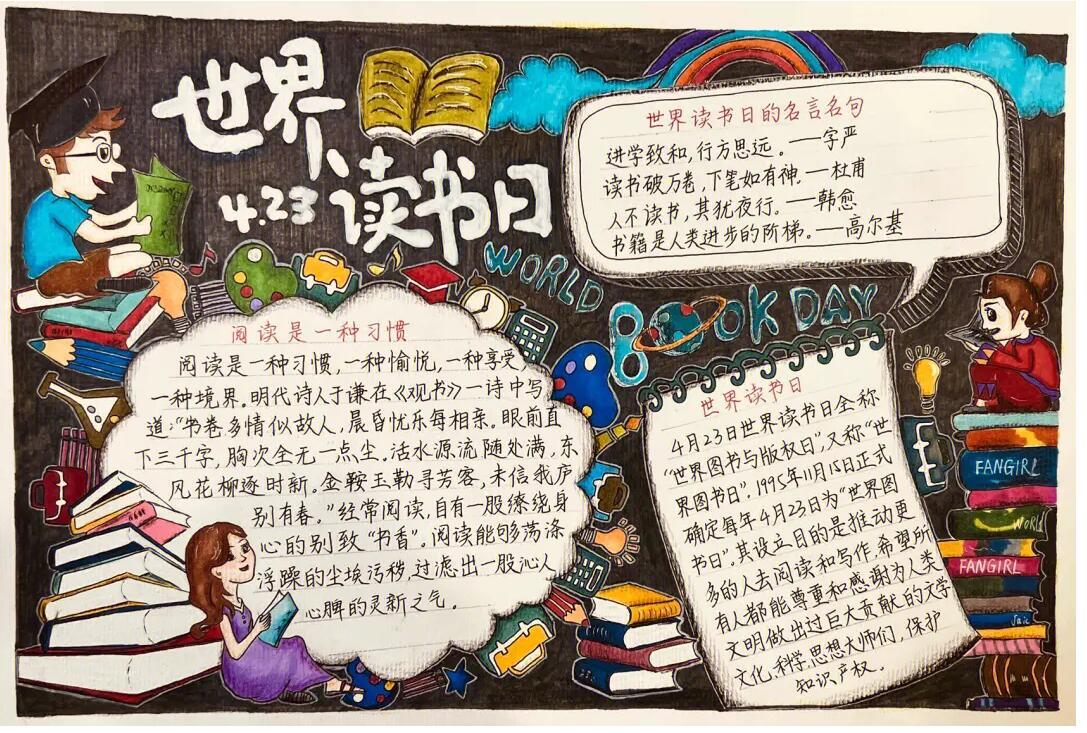 世界
读书日
4.23
WORLD
BOOK DAY
世界读书日的名言名句
进学致和，行方思远。——字严
读书破万卷，下笔如有神。——杜甫
人不读书，其犹夜行。——韩愈
书籍是人类进步的阶梯。——高尔基
阅读是一种习惯
阅读是一种习惯，一种愉悦，一种享受，
一种境界。明代诗人于谦在《观书》一诗中写
道：“书卷多情似故人，晨昏忧乐每相亲。眼前直
下三千字，胸次全无一点尘。活水源流随处满，东
风花柳逐时新。金鞍玉勒寻芳客，未信我庐
别有春。”经常阅读，自有一股缭绕身
心的别致“书香”。阅读能够荡涤
浮躁的尘埃污秽，过滤出一股沁人
心脾的灵新之气。
世界读书日
4月23日世界读书日全称
“世界图书与版权日”，又称“世
界图书日”。1995年11月15日正式
确定每年4月23日为“世界图
书日”。其设立目的是推动更
多的人去阅读和写作，希望所
有人都能尊重和感谢为人类
文明做出过巨大贡献的文学
文化、科学、思想大师们，保护
知识产权。
FANGIRL
WORLD
FANGIRL